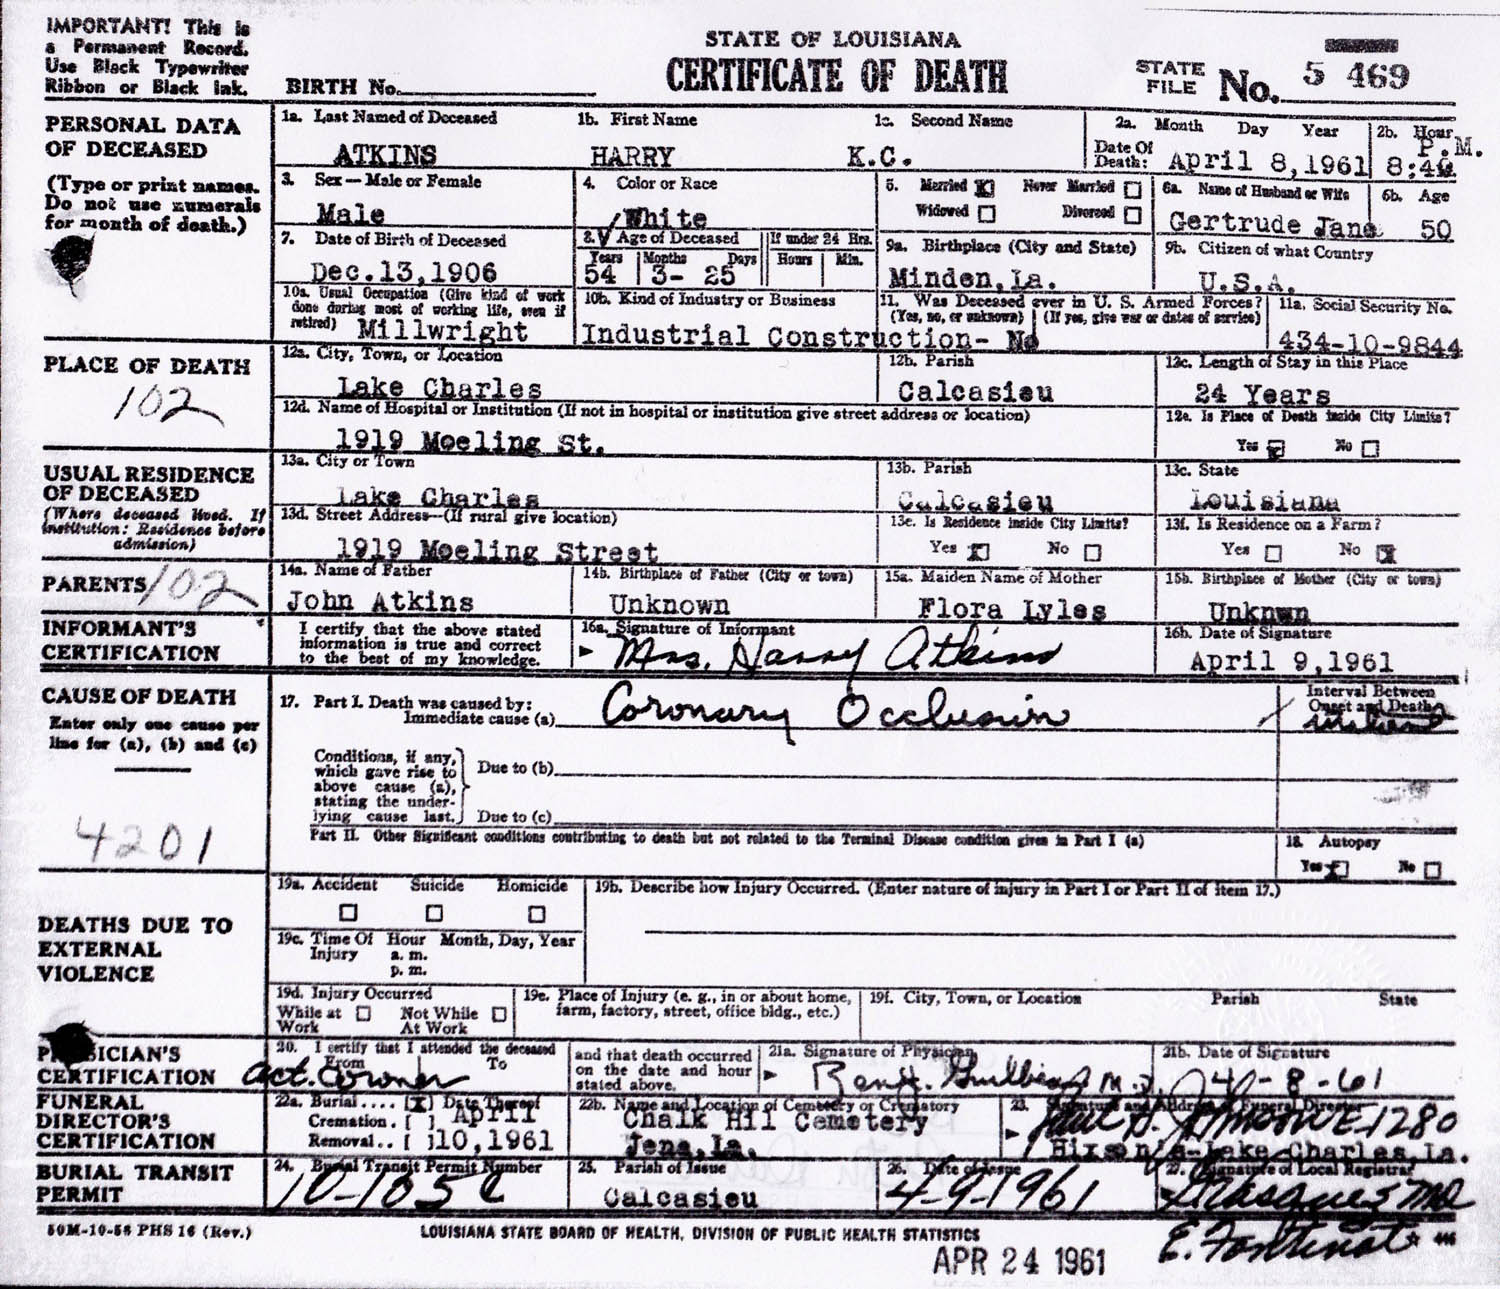 IMPORTANT! This is
a Permanent Record.
Use Black Typewriter
Ribbon or Black Ink.
STATE OF LOUISIANA
CERTIFICATE OF DEATH
BIRTH No.
STATE FILE No. 5 469
PERSONAL DATA
OF DECEASED
(Type or print names.
Do not use numerals
for month of death.)
1a. Last Named of Deceased 1b. First Name 1c. Second Name
ATKINS HARRY K.C.
2a. Month Day Year
Date Of Death: April 8,1961
2b. Hour P.M.
8:40
3. Sex—Male or Female
Male
4. Color or Race
White
5. Married Never Married
Widowed Divorced
6a. Name of Husband or Wife
Gertrude Jane
6b. Age
50
7. Date of Birth of Deceased
Dec.13,1906
8. Age of Deceased If under 24 Hrs.
Years Months Days Hours Min.
54 3- 25
9a. Birthplace (City and State)
Minden,La.
9b. Citizen of what Country
U.S.A.
10a. Usual Occupation (Give kind of work
done during most of working life, even if
retired) Millwright
10b. Kind of Industry or Business
Industrial Construction-
11. Was Deceased ever in U. S. Armed Forces?
(Yes, no, or unknown) (If yes, give war or dates of service)
No
11a. Social Security No.
434-10-9844
PLACE OF DEATH
102
12a. City, Town, or Location
Lake Charles
12b. Parish
Calcasieu
12c. Length of Stay in this Place
24 Years
12d. Name of Hospital or Institution (If not in hospital or institution give street address or location)
1919 Moeling St.
12e. Is Place of Death inside City Limits?
Yes No
USUAL RESIDENCE
OF DECEASED
(Where deceased lived. If
institution: Residence before
admission)
13a. City or Town
Lake Charles
13b. Parish
Calcasieu
13c. State
Louisiana
13d. Street Address—(If rural give location)
1919 Moeling Street
13e. Is Residence inside City Limits?
Yes No
13f. Is Residence on a Farm?
Yes No
PARENTS 102
14a. Name of Father
John Atkins
14b. Birthplace of Father (City or town)
Unknown
15a. Maiden Name of Mother
Flora Lyles
15b. Birthplace of Mother (City or town)
Unknwn
INFORMANT'S
CERTIFICATION
I certify that the above stated
information is true and correct
to the best of my knowledge.
16a. Signature of Informant
Mrs. Harry Atkins
16b. Date of Signature
April 9,1961
CAUSE OF DEATH
Enter only one cause per
line for (a), (b) and (c)
4201
17. Part I. Death was caused by:
Immediate cause (a) Coronary Occlusion
Interval Between
Onset and Death
Conditions, if any,
which gave rise to
above cause (a),
stating the under-
lying cause last.
Due to (b)
Due to (c)
Part II. Other Significant conditions contributing to death but not related to the Terminal Disease condition given in Part I (a)
18. Autopsy
Yes No
DEATHS DUE TO
EXTERNAL
VIOLENCE
19a. Accident Suicide Homicide
19b. Describe how Injury Occurred. (Enter nature of injury in Part I or Part II of item 17.)
19c. Time Of Hour Month, Day, Year
Injury a. m.
p. m.
19d. Injury Occurred
While at Work Not While At Work
19e. Place of Injury (e. g., in or about home,
farm, factory, street, office bldg., etc.)
19f. City, Town, or Location Parish State
PHYSICIAN'S
CERTIFICATION
20. I certify that I attended the deceased
From To
Act. Coroner
and that death occurred
on the date and hour
stated above.
21a. Signature of Physician
Benj. M.D.
21b. Date of Signature
4-8-61
FUNERAL
DIRECTOR'S
CERTIFICATION
22a. Burial.... [X] Date Thereof
Cremation. [ ] April
Removal.. [ ] 10,1961
22b. Name and Location of Cemetery or Crematory
Chalk Hil Cemetery
Jena,La.
23. Signature and Address of Funeral Director
E1280
Hixson's-Lake Charles,La.
BURIAL TRANSIT
PERMIT
24. Burial Transit Permit Number
10-105
25. Parish of Issue
Calcasieu
26. Date of Issue
4-9-1961
27. Signature of Local Registrar
E. Fontenot
50M-10-58 PHS 16 (Rev.)
LOUISIANA STATE BOARD OF HEALTH, DIVISION OF PUBLIC HEALTH STATISTICS
APR 24 1961